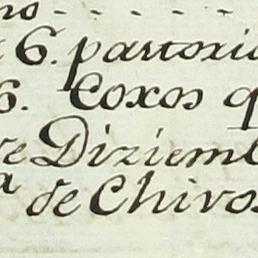 no - - - - -
6. partoria
6. Coxos q
de Diziemb
a de Chivos